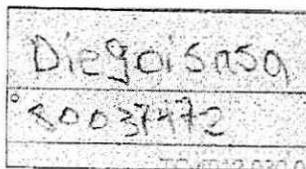 Diegoisasa
80037472